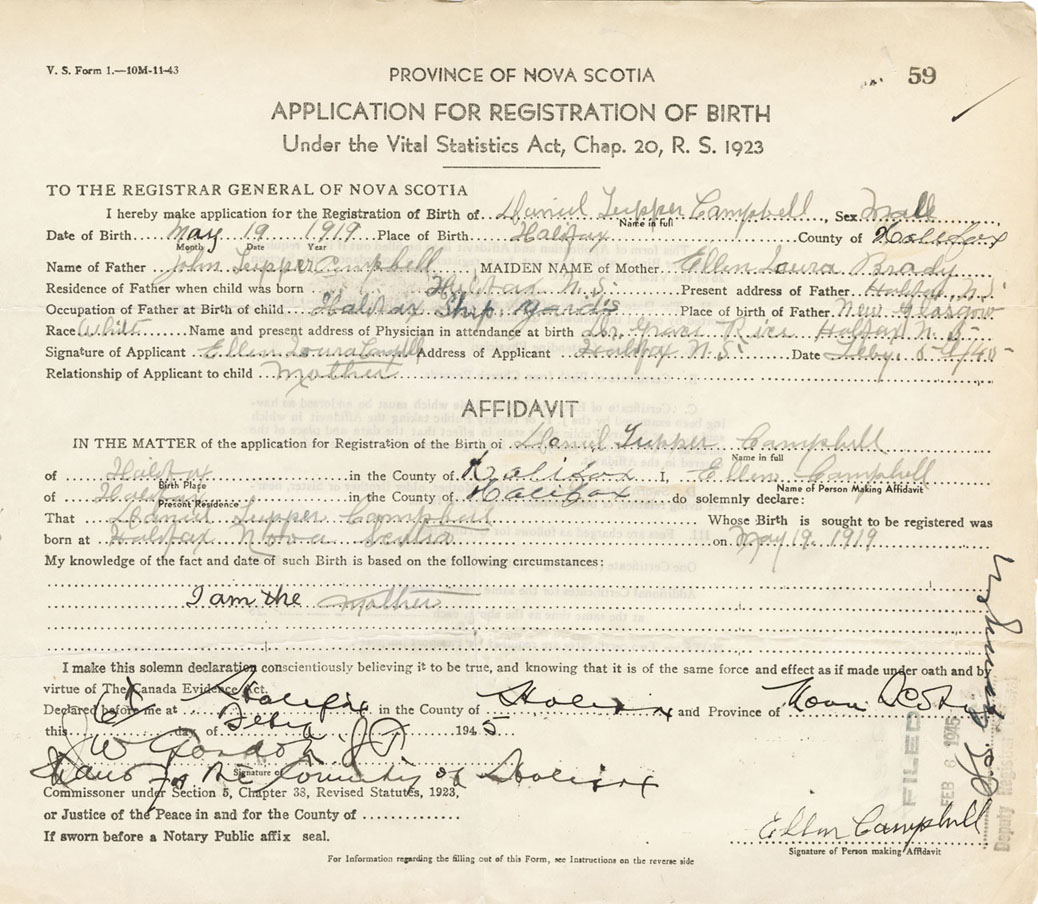 V. S. Form 1.—10M-11-43
PROVINCE OF NOVA SCOTIA
59
APPLICATION FOR REGISTRATION OF BIRTH
Under the Vital Statistics Act, Chap. 20, R. S. 1923
TO THE REGISTRAR GENERAL OF NOVA SCOTIA
I hereby make application for the Registration of Birth of Daniel Tupper Campbell, Sex Male
Name in full
Date of Birth May 19 1919 Place of Birth Halifax County of Halifax
Month Date Year
Name of Father John Tupper Campbell MAIDEN NAME of Mother Ellen Laura Brady
Residence of Father when child was born Halifax N.S. Present address of Father Halifax, N.S.
Occupation of Father at Birth of child Halifax Ship Yards Place of birth of Father New Glasgow
Race White Name and present address of Physician in attendance at birth Dr. Grace Rice Halifax N.S.
Signature of Applicant Ellen Laura Campbell Address of Applicant Halifax N.S. Date Feby. 5
Relationship of Applicant to child Mother
AFFIDAVIT
IN THE MATTER of the application for Registration of the Birth of Daniel Tupper Campbell
Name in full
of Halifax in the County of Halifax I, Ellen Campbell
Birth Place Name of Person Making Affidavit
of Halifax in the County of Halifax do solemnly declare:
Present Residence
That Daniel Tupper Campbell Whose Birth is sought to be registered was
born at Halifax Nova Scotia on May 19. 1919
My knowledge of the fact and date of such Birth is based on the following circumstances:
I am the mother
I make this solemn declaration conscientiously believing it to be true, and knowing that it is of the same force and effect as if made under oath and by
virtue of The Canada Evidence Act.
Declared before me at Halifax in the County of Halifax and Province of Nova Scotia
this day of Feby 1945
J W Gordon J P
Signature of
for the County of Halifax
Commissioner under Section 5, Chapter 38, Revised Statutes, 1923,
or Justice of the Peace in and for the County of
If sworn before a Notary Public affix seal.
Ellen Campbell
Signature of Person making Affidavit
For Information regarding the filling out of this Form, see Instructions on the reverse side
FILED
FEB 6 1945
Deputy Registrar General